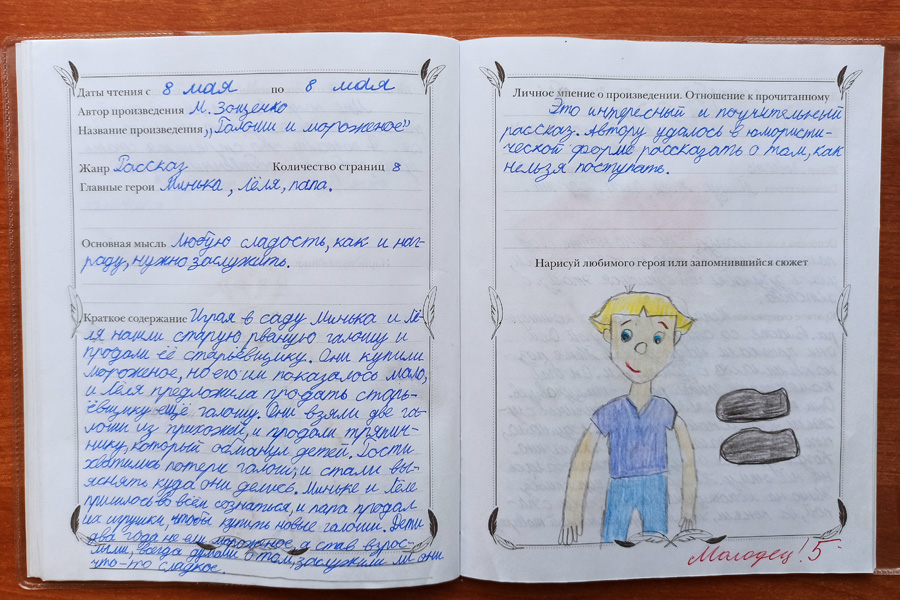 Даты чтения с 8 мая по 8 мая
Автор произведения М. Зощенко
Название произведения „Галоши и мороженое"
Жанр Рассказ Количество страниц 8
Главные герои Минька, Лёля, папа.
Основная мысль Любую сладость, как и наг-
раду, нужно заслужить.
Краткое содержание Играя в саду Минька и Лё-
ля нашли старую рваную галошу и
продали её старьёвщику. Они купили
мороженое, но его им показалось мало,
и Лёля предложила продать старь-
ёвщику ещё галошу. Они взяли две га-
лоши из прихожей, и продали тряпич-
нику, который обманул детей. Гости
хватились потери галош, и стали вы-
яснять куда они делись. Миньке и Лёле
пришлось во всём сознаться, и папа продал
их игрушки, чтобы купить новые галоши. Дети
два года не ели мороженое, а став взрос-
лыми, всегда думали о том, заслужили ли они
что-то сладкое.
Личное мнение о произведении. Отношение к прочитанному
Это интересный и поучительный
рассказ. Автору удалось в юмористи-
ческой форме рассказать о том, как
нельзя поступать.
Нарисуй любимого героя или запомнившийся сюжет
Молодец! 5